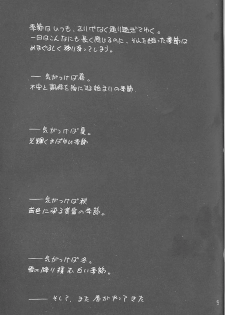 季節はいつも、止まりでなく通り過ぎてゆく。
一日はこんなにも長く感じるのに、それを追った季節は
めまぐるしく移り変ってしまう。
── 気がつけば春。
不安と期待を胸に
始まりの季節。
── 気がつけば夏。
光輝くまばゆい季節
── 気がつけば秋
茜色に染る
の季節。
── 気がつけば冬。
雪の降り積る白い季節。
── そして、また春がやってきた